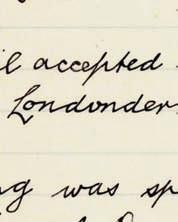 accepted
Londonder
was sp